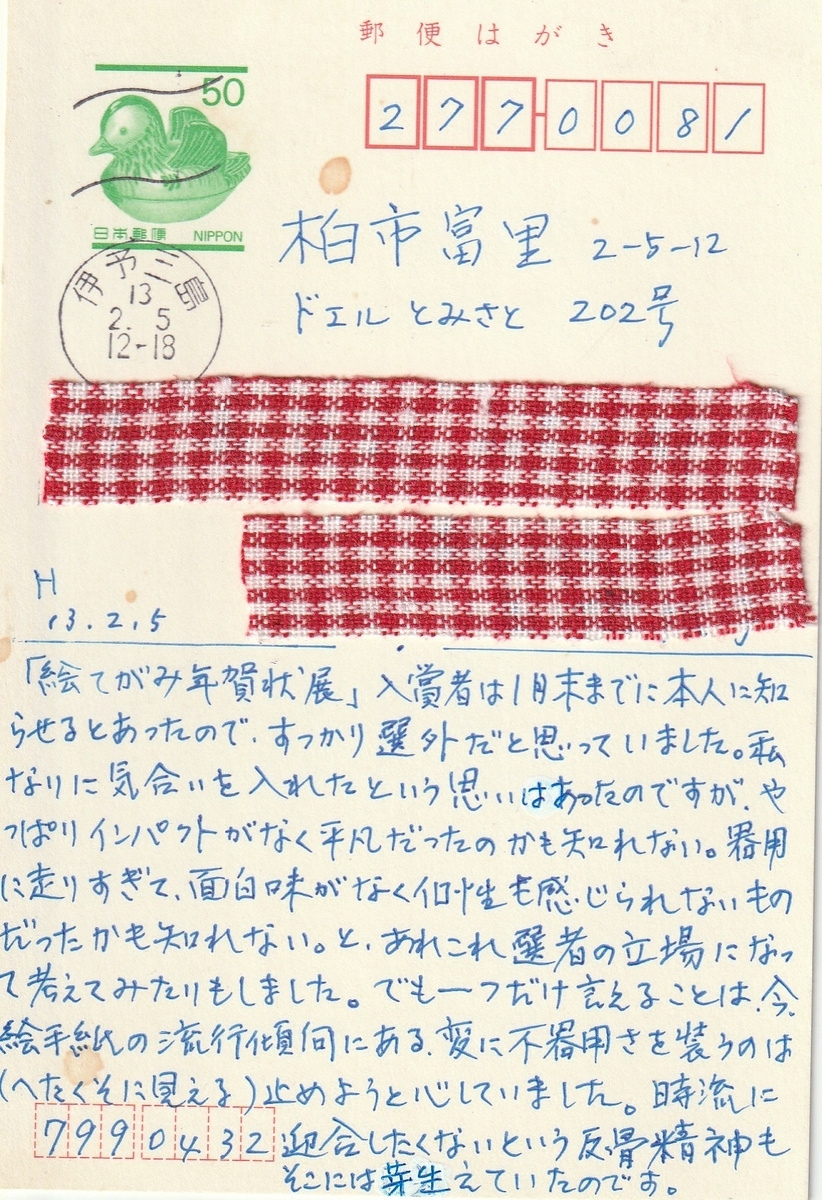 郵便はがき
50
日本郵便 NIPPON
277-0081
伊予三島
13
2. 5
12-18
柏市富里 2-5-12
ドエルとみさと 202号
H
13.2.5
「絵てがみ年賀状展」入賞者は1月末までに本人に知
らせるとあったので、すっかり選外だと思っていました。私
なりに気合いを入れたという思いはあったのですが、や
っぱりインパクトがなく平凡だったのかも知れない。器用
に走りすぎて、面白味がなく個性も感じられないもの
だったかも知れない。と、あれこれ選者の立場になっ
て考えてみたりもしました。でも一つだけ言えることは、今、
絵手紙の流行傾向にある、変に不器用さを装うのは
(へたくそに見える)止めようと心していました。時流に
迎合したくないという反骨精神も
そこには芽生えていたのです。
7990432